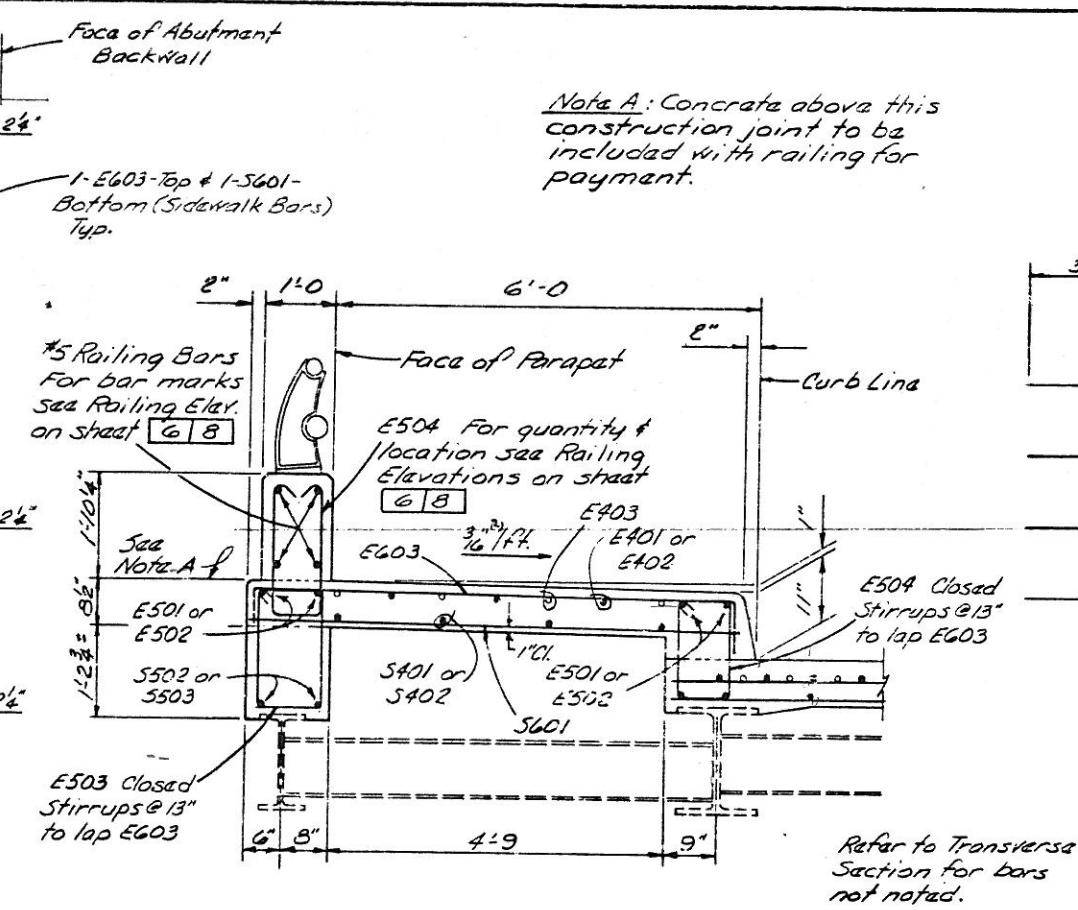 Face of Abutment
Backwall
2¼"
1-E603-Top & 1-S601-
Bottom (Sidewalk Bars)
Typ.
Note A: Concrete above this
construction joint to be
included with railing for
payment.
2"
1'-0
6'-0
2"
3
#5 Railing Bars
For bar marks
see Railing Elev.
on sheet 6 8
Face of Parapet
Curb Line
E504 For quantity &
location see Railing
Elevations on sheet
6 8
1'-10¼"
2¼"
See
Note A
3/16"/ft.
E603
E403
E401 or
E402
1"
11"
8½"
E501 or
E502
E504 Closed
Stirrups @ 13"
to lap E603
1'-2¾"±
S502 or
S503
S401 or
S402
1"Cl.
E501 or
E502
S601
E503 Closed
Stirrups @ 13"
to lap E603
6"
8"
4'-9
9"
Refer to Transverse
Section for bars
not noted.